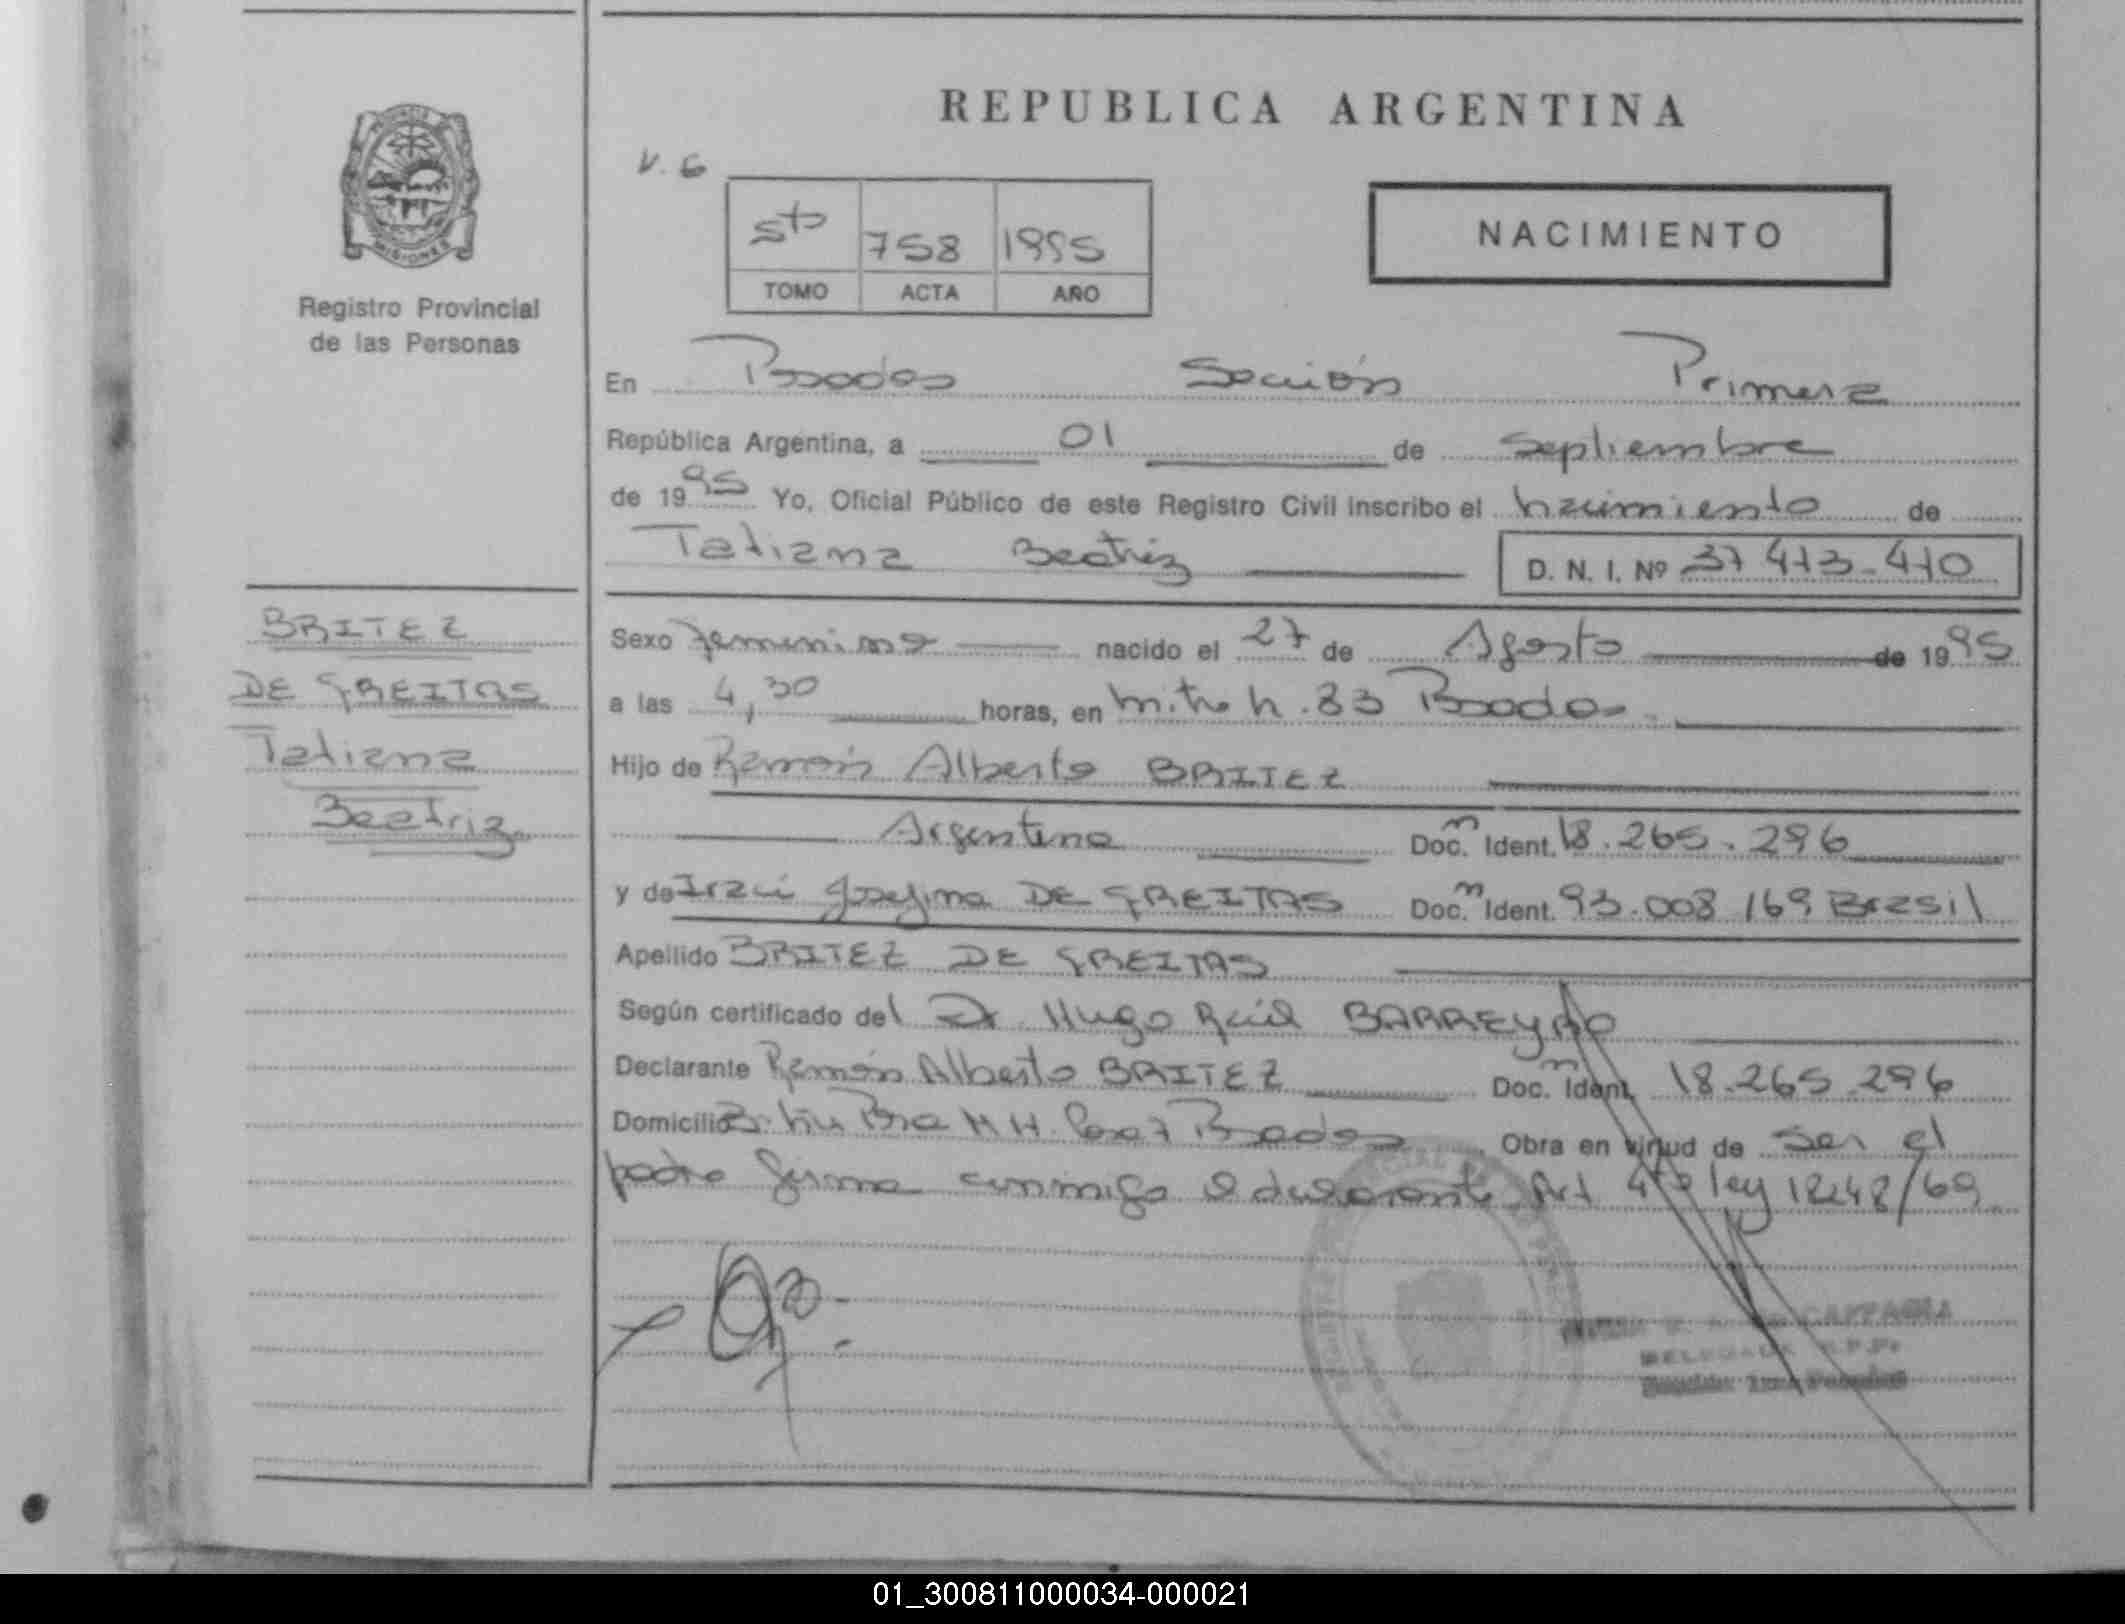 REPUBLICA ARGENTINA
PROVINCIA
MISIONES
Registro Provincial
de las Personas
V. 6
5to 758 1995
TOMO ACTA AÑO
NACIMIENTO
En Posadas Sección Primera
República Argentina, a 01 de Septiembre
de 1995 Yo, Oficial Público de este Registro Civil inscribo el nacimiento de
Tatiana Beatriz D. N. I. Nº 37 413-410
BRITEZ
DE FREITAS
Tatiana
Beatriz
Sexo femenino nacido el 27 de Agosto de 1995
a las 4,30 horas, en mitre n. 83 Posadas
Hijo de Ramón Alberto BRITEZ
Argentino Doc. n Ident. 18.265.296
y de Iraci Josefina DE FREITAS Doc. n Ident. 93.008 169 Brasil
Apellido BRITEZ DE FREITAS
Según certificado del Dr Hugo Raúl BARREYRO
Declarante Ramón Alberto BRITEZ Doc. n Ident. 18.265 296
Domicilio Posadas Obra en virtud de ser el
padre firma conmigo el declarante Art 4º ley 18248/69
DELEGADA R.P.P.
Sección 1ra Posadas
01_300811000034-000021